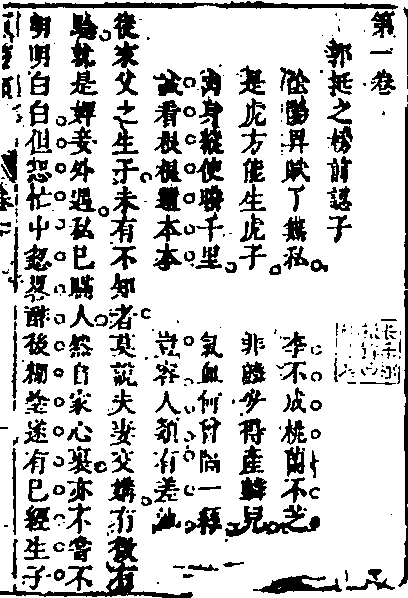 第一卷
郭挺之榜前認子
陰陽昇賦了無私 李不成桃蘭不芝
是虎方能生虎子 非麟安得產麟兒
肉身縱使睽千里 氣血何曾隔一絲
試看根根還本本 豈容人類有差池
從來父之生子未有不知者莫說夫妻交媾有徵有
驗就是婢妾外遇私己瞞人然自家心裏亦未嘗不
明明白白但恐忙中忽畧醉後糊塗遂有已經生子